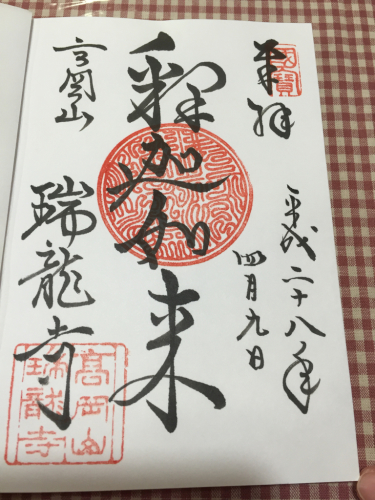 国寶
奉拝
平成二十八年
四月九日
釋迦如来
高岡山
瑞龍寺
高岡山
瑞龍寺